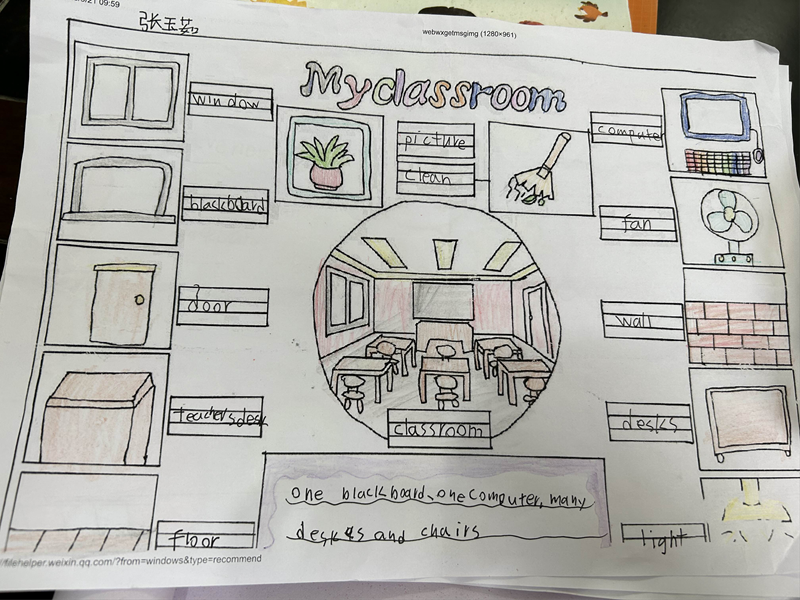 09:59
webwxgetmsgimg (1280×961)
张玉茹
My classroom
window
picture
computer
clean
blackboard
fan
door
wall
teacher's desk
classroom
desks
one blackboard、one computer, many
desks and chairs
floor
light
//filehelper.weixin.qq.com/?from=windows&type=recommend